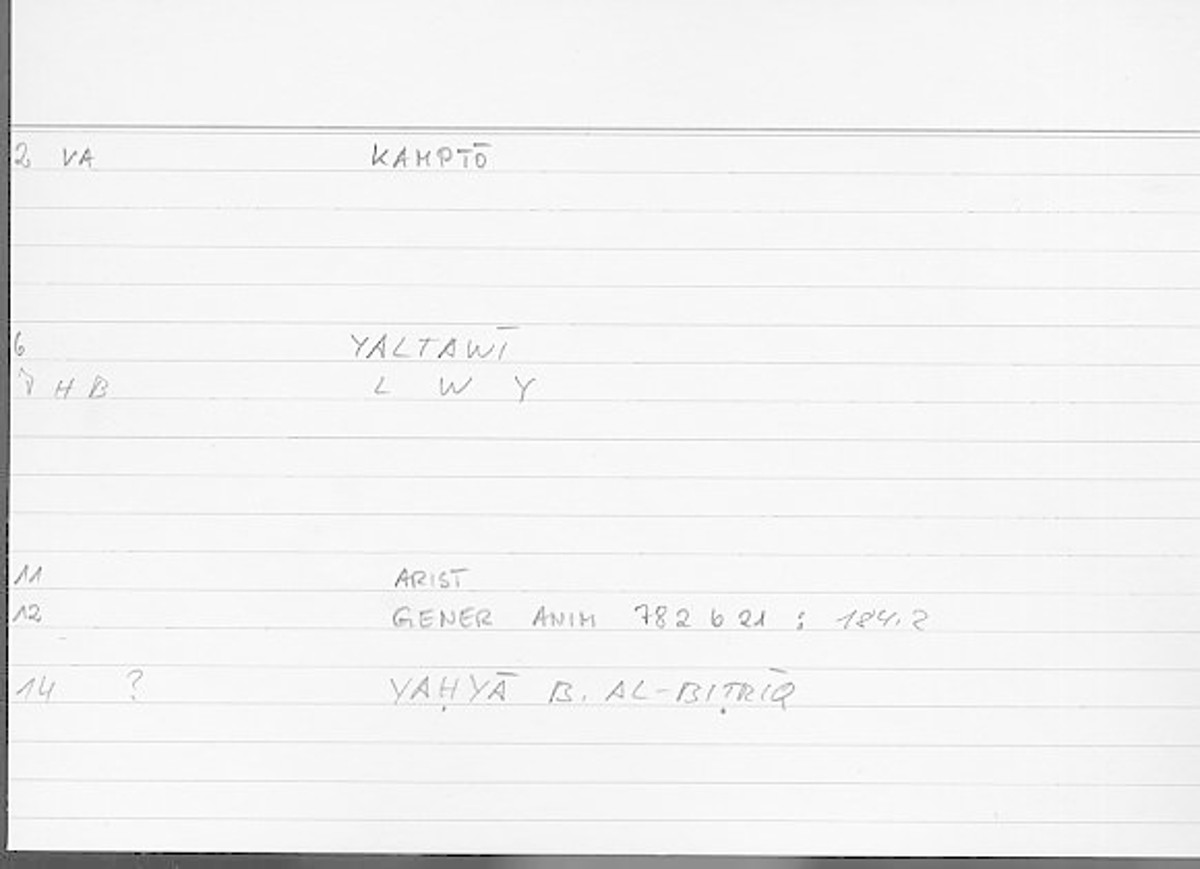 2 VA KAMPTŌ
6 YALTAWĪ
7 H B L W Y
11 ARIST
12 GENER ANIM 782 b 21 : 184.2
14 ? YAḤYĀ B. AL-BIṬRĪQ